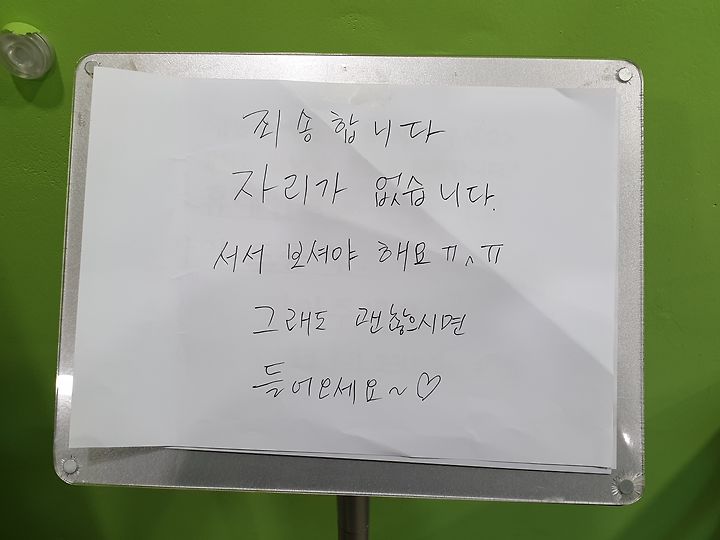 죄송합니다
자리가 없습니다.
서서 보셔야 해요ㅠ^ㅠ
그래도 괜찮으시면
들어오세요~♡